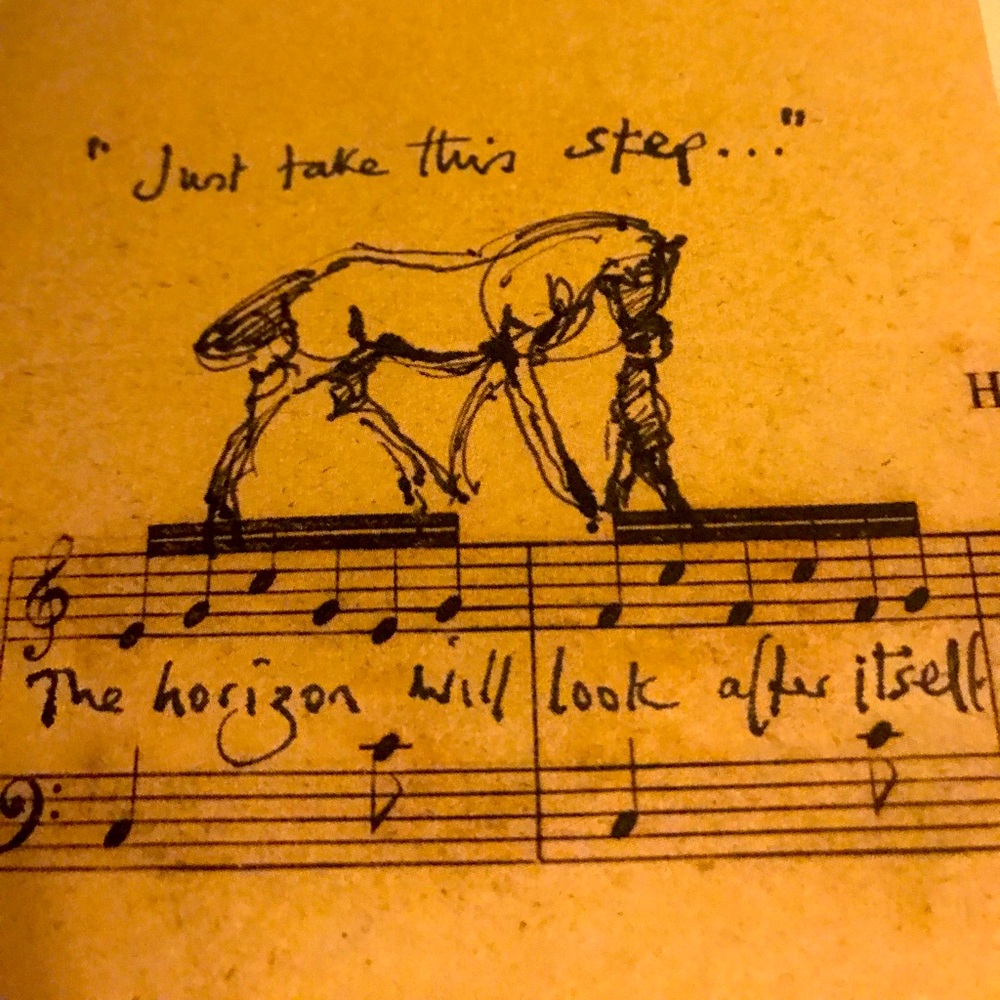 "Just take this step..."
H
The horizon will look after itself